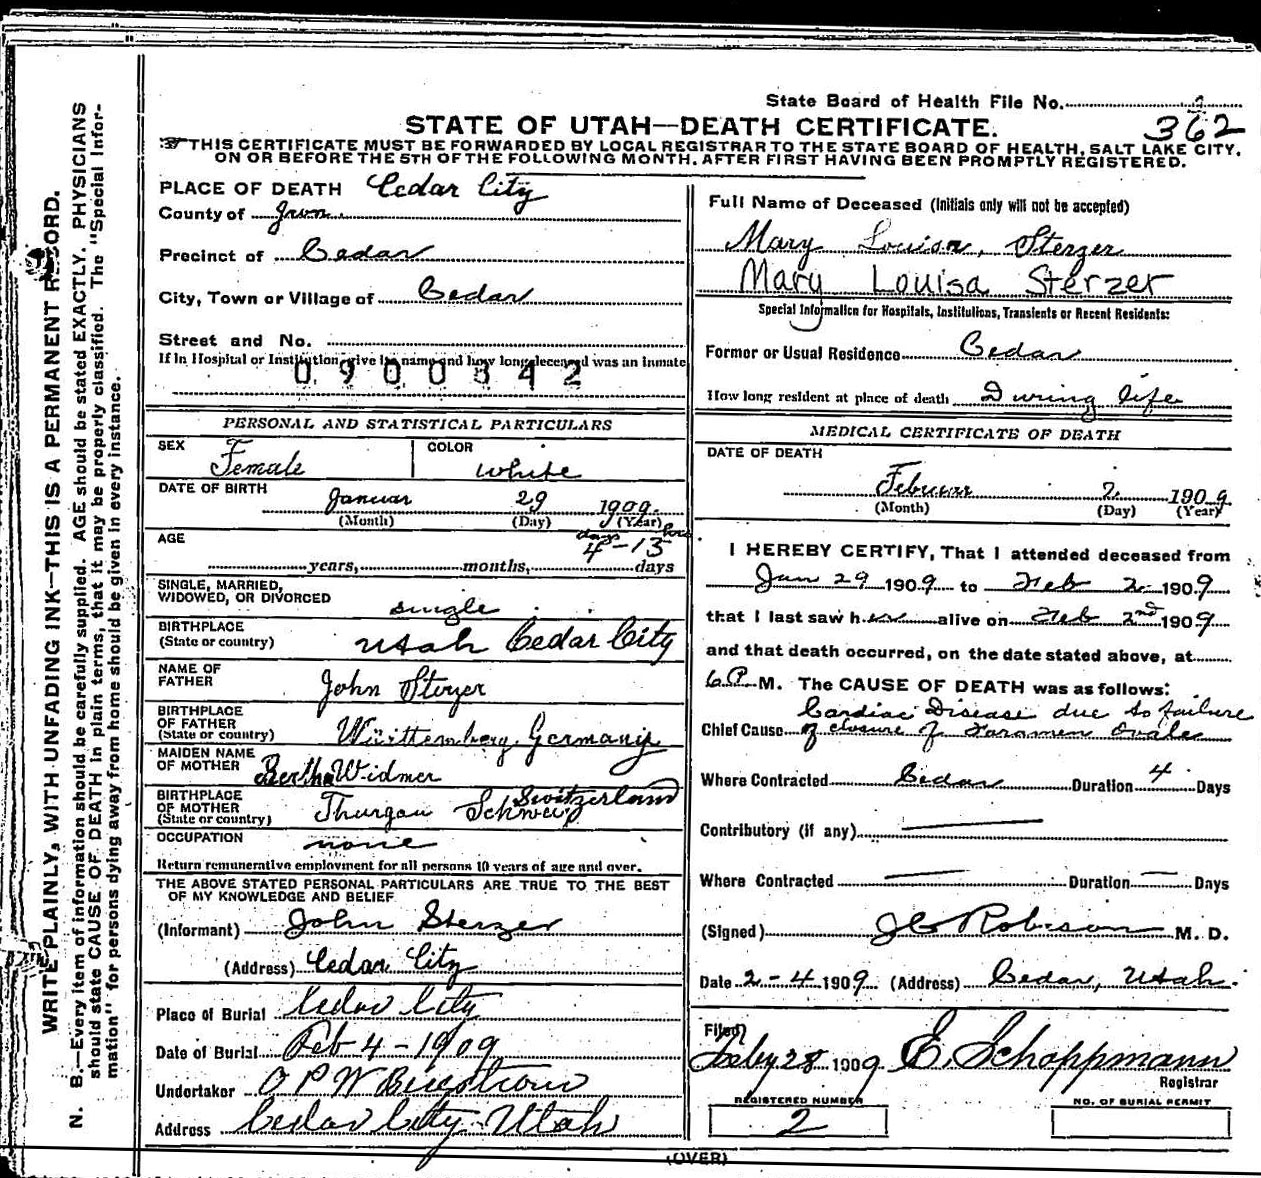 State Board of Health File No. 2
362
STATE OF UTAH—DEATH CERTIFICATE.
THIS CERTIFICATE MUST BE FORWARDED BY LOCAL REGISTRAR TO THE STATE BOARD OF HEALTH, SALT LAKE CITY,
ON OR BEFORE THE 5TH OF THE FOLLOWING MONTH, AFTER FIRST HAVING BEEN PROMPTLY REGISTERED.
WRITE PLAINLY, WITH UNFADING INK—THIS IS A PERMANENT RECORD.
N. B.—Every item of information should be carefully supplied. AGE should be stated EXACTLY. PHYSICIANS
should state CAUSE OF DEATH in plain terms, that it may be properly classified. The "Special Infor-
mation" for persons dying away from home should be given in every instance.
PLACE OF DEATH Cedar City
County of Iron
Precinct of Cedar
City, Town or Village of Cedar
Street and No.
If in Hospital or Institution, give its name and how long deceased was an inmate
0900342
PERSONAL AND STATISTICAL PARTICULARS
SEX Female COLOR white
DATE OF BIRTH Januar 29 1909.
(Month) (Day) (Year)
AGE days hrs
4-15
years, months, days
SINGLE, MARRIED,
WIDOWED, OR DIVORCED single
BIRTHPLACE
(State or country) Utah Cedar City
NAME OF
FATHER John Sterzer
BIRTHPLACE
OF FATHER
(State or country) Württemberg Germany
MAIDEN NAME
OF MOTHER Bertha Widmer
BIRTHPLACE Switzerland
OF MOTHER
(State or country) Thurgau Schweiz
OCCUPATION none
Return remunerative employment for all persons 10 years of age and over.
THE ABOVE STATED PERSONAL PARTICULARS ARE TRUE TO THE BEST
OF MY KNOWLEDGE AND BELIEF
(Informant) John Sterzer
(Address) Cedar City
Place of Burial Cedar City
Date of Burial Feb 4-1909
Undertaker O P W
Address Cedar City Utah
Full Name of Deceased (Initials only will not be accepted)
Mary Louisa, Sterzer
Mary Louisa Sterzer
Special Information for Hospitals, Institutions, Transients or Recent Residents:
Former or Usual Residence Cedar
How long resident at place of death During life
MEDICAL CERTIFICATE OF DEATH
DATE OF DEATH
Februar 2 1909
(Month) (Day) (Year)
I HEREBY CERTIFY, That I attended deceased from
Jan 29 1909 to Feb 2 1909
that I last saw her alive on Feb 2nd 1909
and that death occurred, on the date stated above, at
6 P. M. The CAUSE OF DEATH was as follows:
Cardiac Disease due to failure
Chief Cause of closure of Foramen Ovale
Where Contracted Cedar Duration 4 Days
Contributory (if any)
Where Contracted Duration Days
(Signed) Robison M. D.
Date 2-4 1909 (Address) Cedar, Utah.
Filed
Feby 28 1909 E. Schoppmann
Registrar
REGISTERED NUMBER
2
NO. OF BURIAL PERMIT
(OVER)